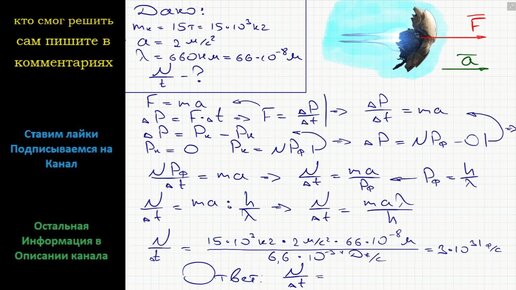 кто смог решить
сам пишите в
комментариях
Ставим лайки
Подписываемся на
Канал
Остальная
Информация в
Описании канала
Дано:
mк = 15т = 15·10³кг
a = 2 м/с²
λ = 660нм = 66·10⁻⁸м
N/t - ?
F
a
F = ma
ΔP = F·Δt ⇒ F = ΔP/Δt ⇒ ΔP/Δt = ma
ΔP = Pк - Pн
Pн = 0 Pк = NPф ⇒ ΔP = NPф - 0
NPф/Δt = ma ⇒ N/Δt = ma/Pф ← Pф = h/λ
N/Δt = ma : h/λ ⇒ N/Δt = maλ/h
N/Δt = 15·10³кг·2м/с²·66·10⁻⁸м / 6,6·10⁻³⁴Дж/с = 3·10³¹ф/с
Ответ: N/Δt =